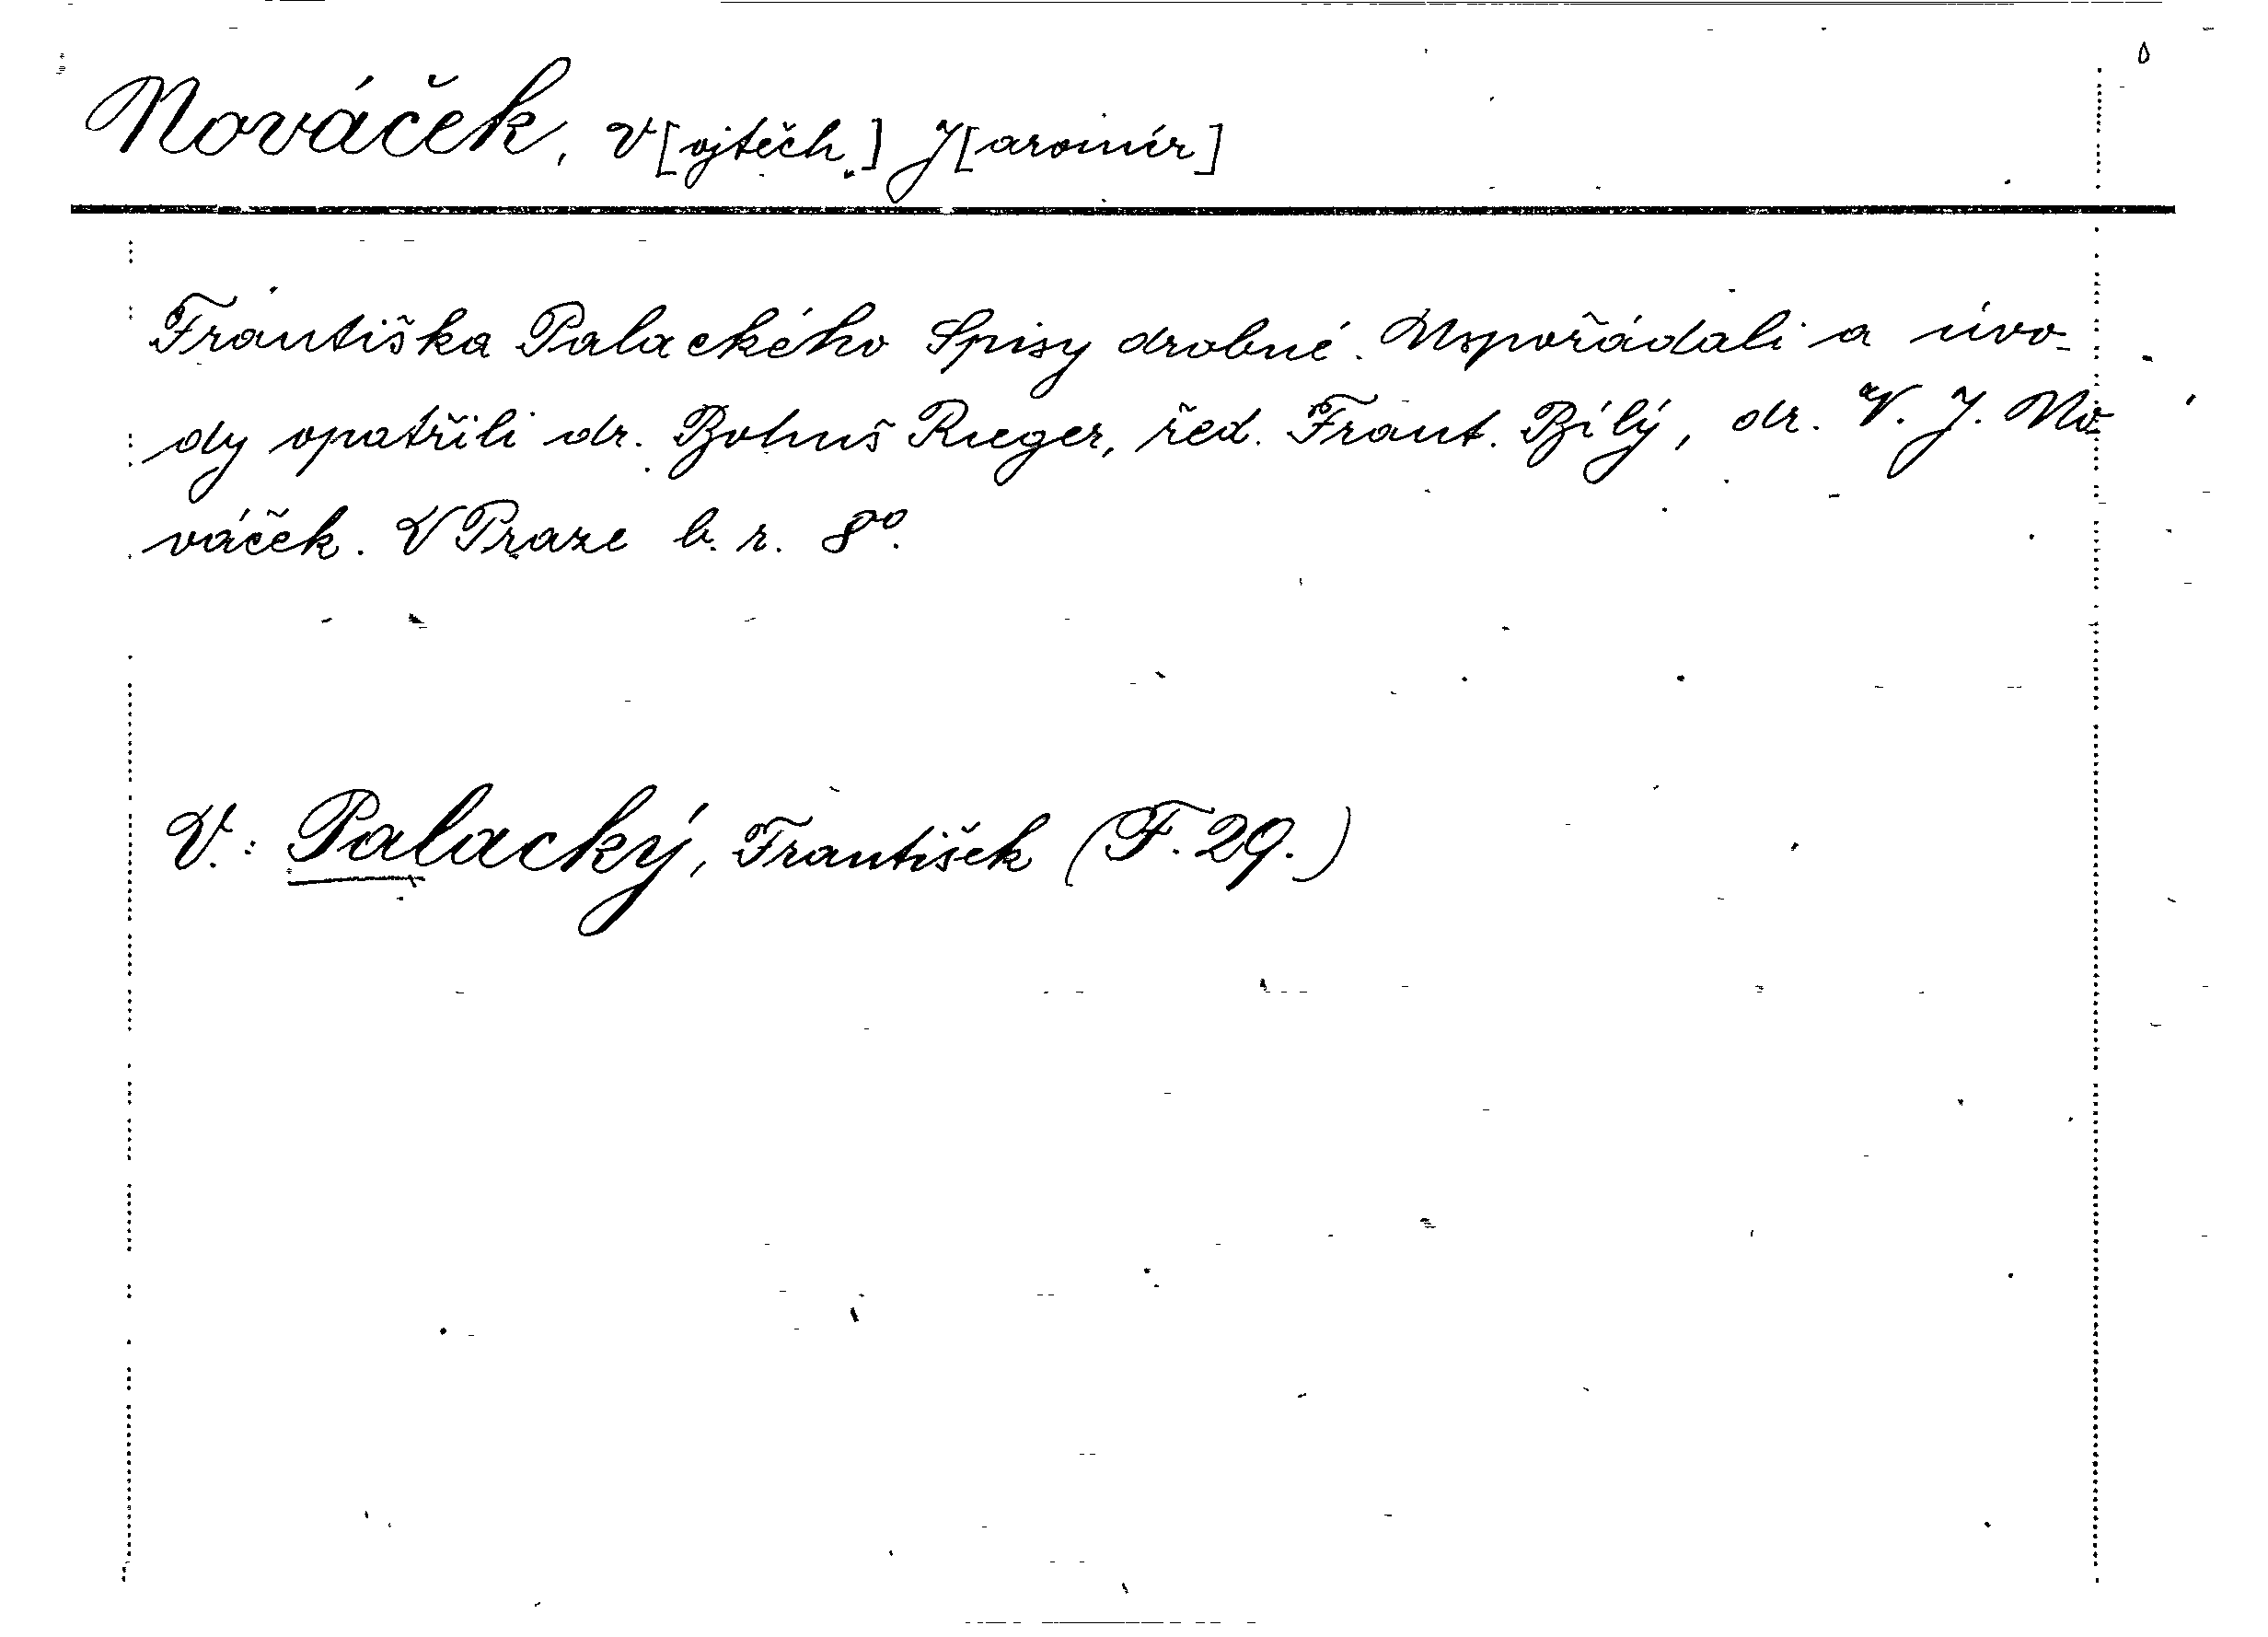 Nováček, V[ojtěch.] J[aromír]
Františka Palackého Spisy drobné. Uspořádali a úvo-
dy opatřili dr. Bohuš Rieger, řed. Frant. Bílý, dr. V. J. No-
váček. V Praze b. r. 8°.
V.: Palacký, František (F. 29.)